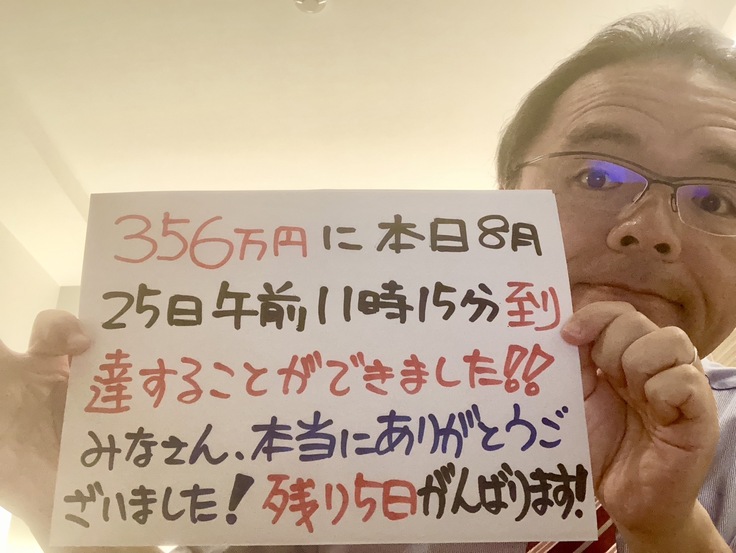 356万円に本日8月
25日午前11時15分到
達することができました!!
みなさん、本当にありがとうご
ざいました!残り5日がんばります!